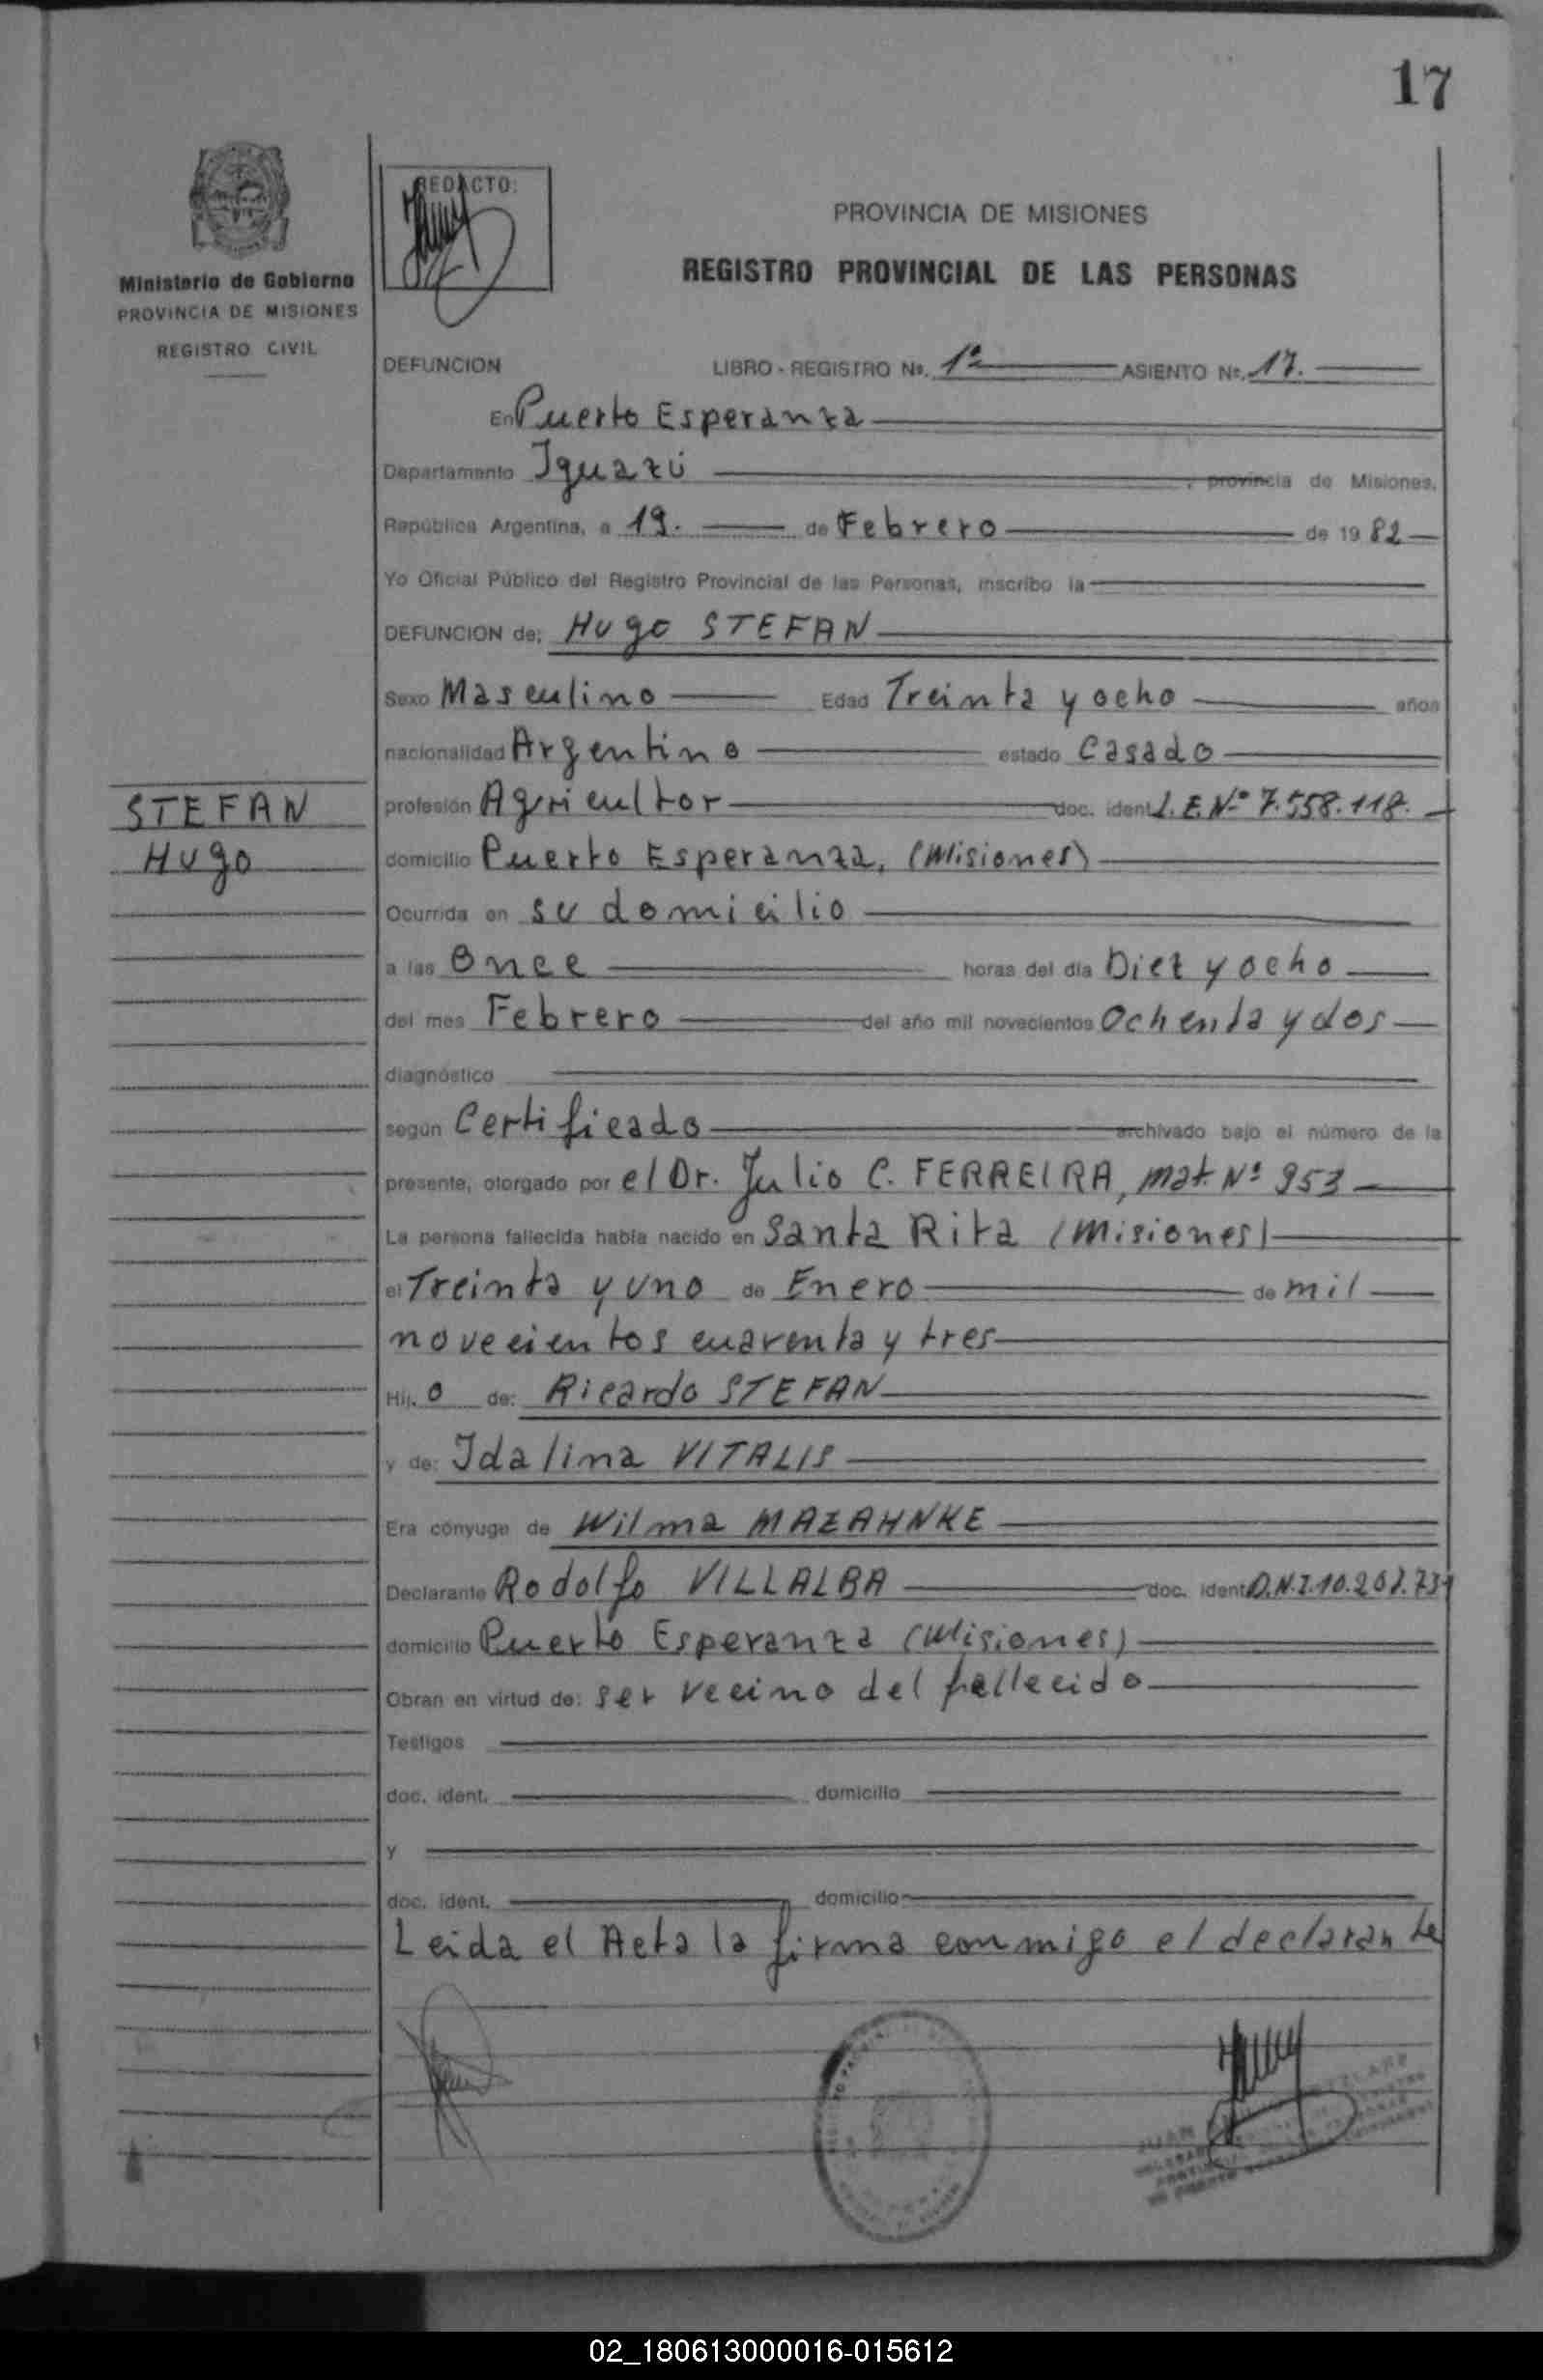 17
REDACTO:
PROVINCIA DE MISIONES
REGISTRO PROVINCIAL DE LAS PERSONAS
Ministerio de Gobierno
PROVINCIA DE MISIONES
REGISTRO CIVIL
DEFUNCION LIBRO - REGISTRO Nº. 1º ASIENTO Nº. 17.
En Puerto Esperanza
Departamento Iguazú , provincia de Misiones,
República Argentina, a 19. de Febrero de 1982
Yo Oficial Público del Registro Provincial de las Personas, inscribo la
DEFUNCION de: Hugo STEFAN
Sexo Masculino Edad Treinta y ocho años
nacionalidad Argentino estado Casado
STEFAN
Hugo
profesión Agricultor doc. ident. L.E.Nº 7.558.118.
domicilio Puerto Esperanza, (Misiones)
Ocurrida en su domicilio
a las Once horas del día Diez y ocho
del mes Febrero del año mil novecientos Ochenta y dos
diagnóstico
según Certificado archivado bajo el número de la
presente, otorgado por el Dr. Julio C. FERREIRA, mat. Nº 953
La persona fallecida había nacido en Santa Rita (Misiones)
el Treinta y uno de Enero de mil
novecientos cuarenta y tres
Hij. o de: Ricardo STEFAN
y de: Idalina VITALIS
Era cónyuge de Wilma MAZAHNKE
Declarante Rodolfo VILLALBA doc. ident. D.N.I.
domicilio Puerto Esperanza (Misiones)
Obran en virtud de: ser vecino del fallecido
Testigos
doc. ident. domicilio
y
doc. ident. domicilio
Leida el Acta la firma conmigo el declarante
JUAN
02_180613000016-015612